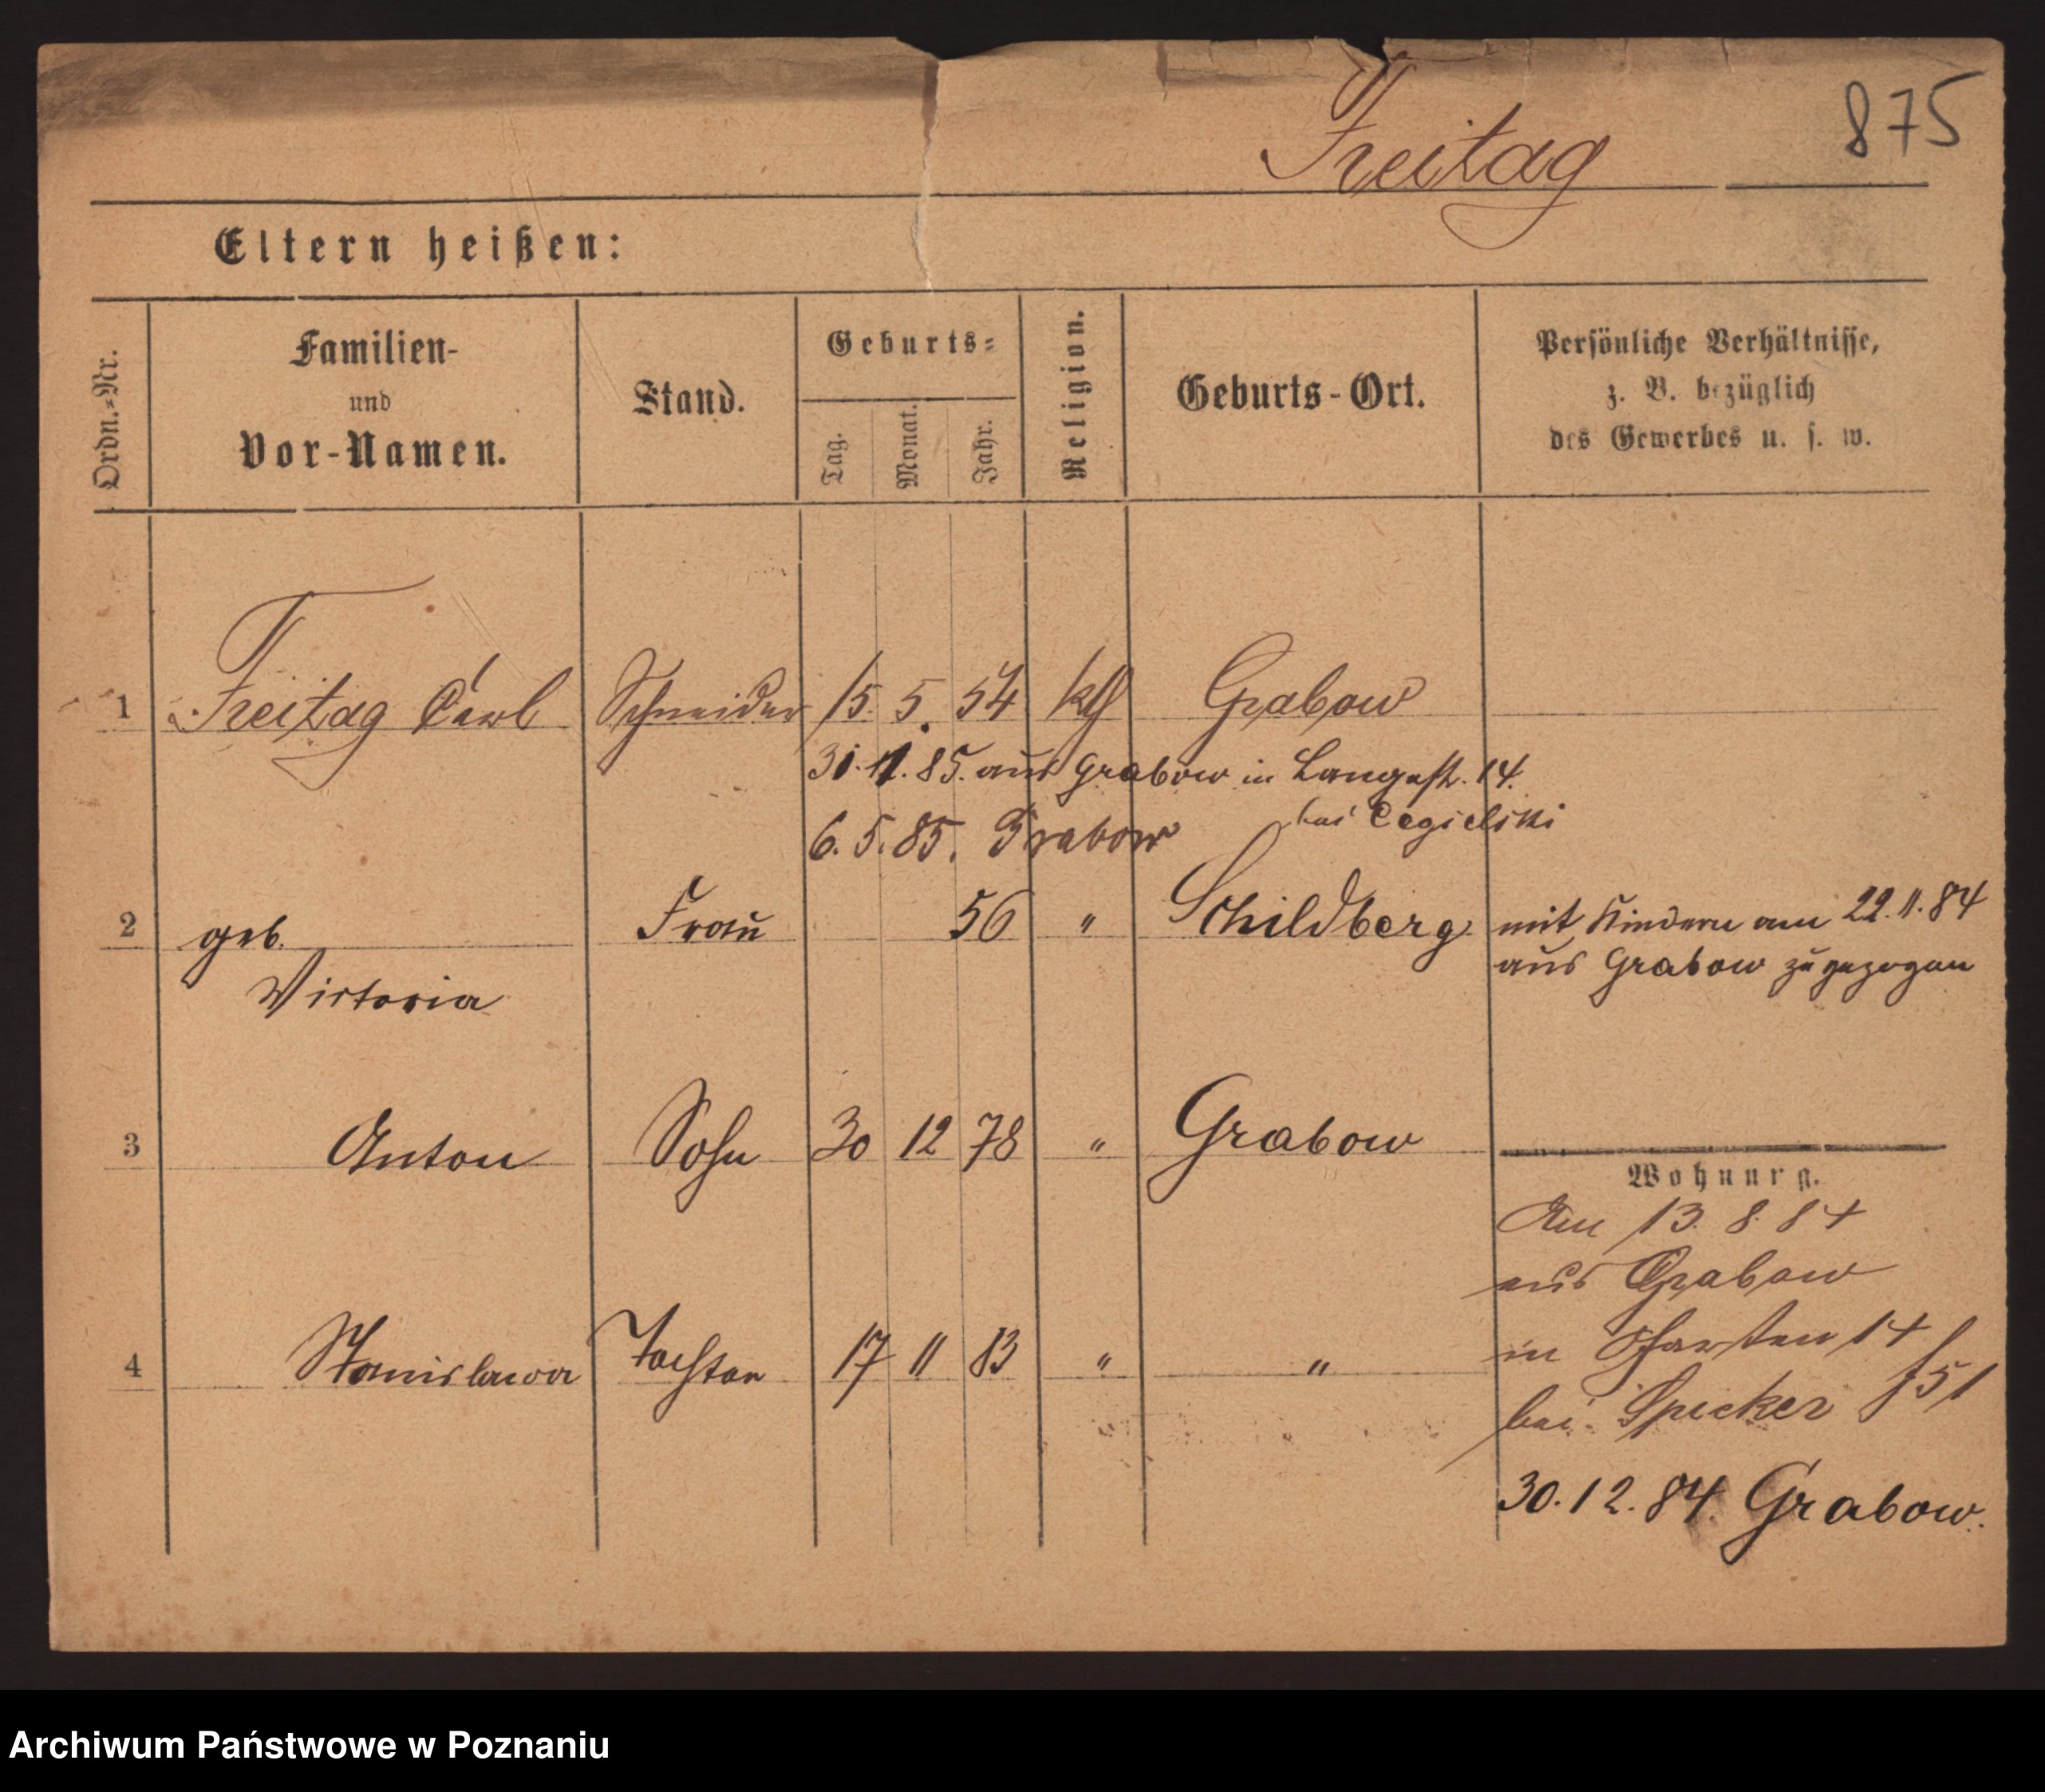 875
Freitag
Eltern heißen:
Ordn.=Nr.
Familien-
und
Vor-Namen.
Stand.
Geburts=
Tag.
Monat.
Jahr.
Religion.
Geburts-Ort.
Persönliche Verhältnisse,
z. B. bezüglich
des Gewerbes u. s. w.
1 Freitag Carl Schneider 15. 5. 54 kth Grabow
31. 1. 85. aus Grabow in Langestr. 14.
bei Cegielski
6. 5. 85. Grabow
2 geb. Frau 56 " Schildberg mit Kindern am 22. 11. 84
aus Grabow zugezogen
Victoria
3 Anton Sohn 30 12 78 " Grabow
Wohnung.
Am 13. 8. 84
aus Grabow
in 14
4 Stanislawa Tochter 17 11 83 " "
bei Spicker 51
30. 12. 84. Grabow.
Archiwum Państwowe w Poznaniu